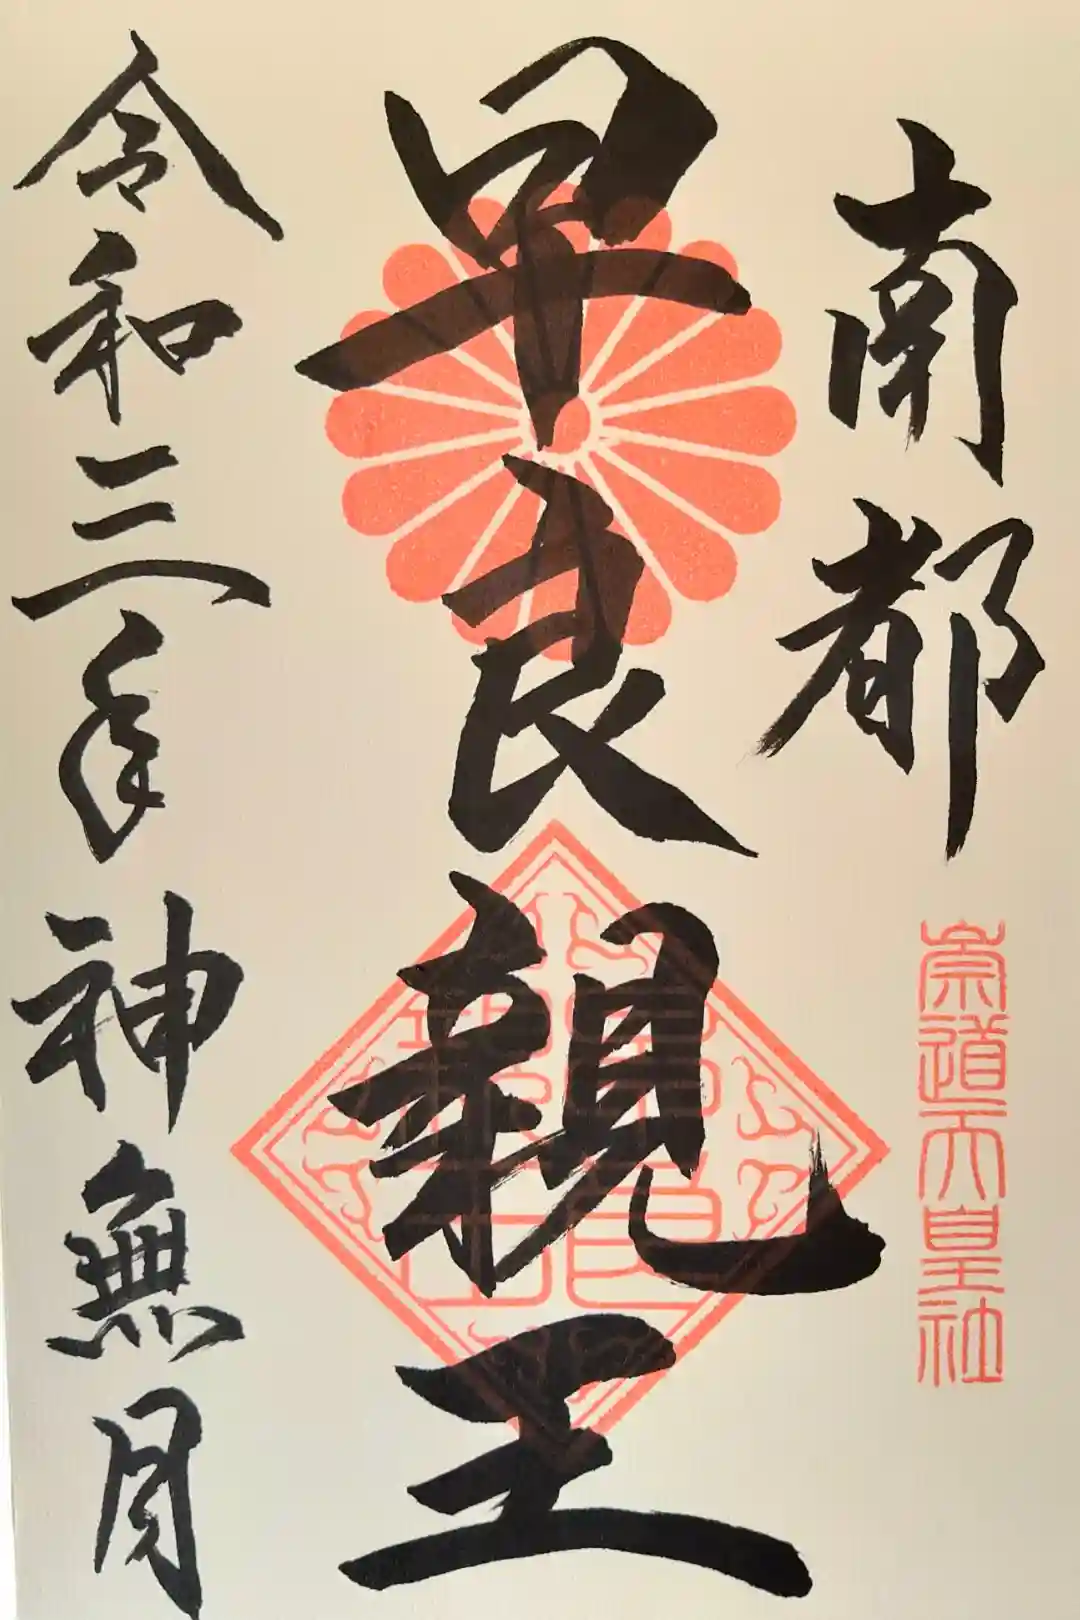 南都
崇道天皇社
早良親王
令和三年神無月